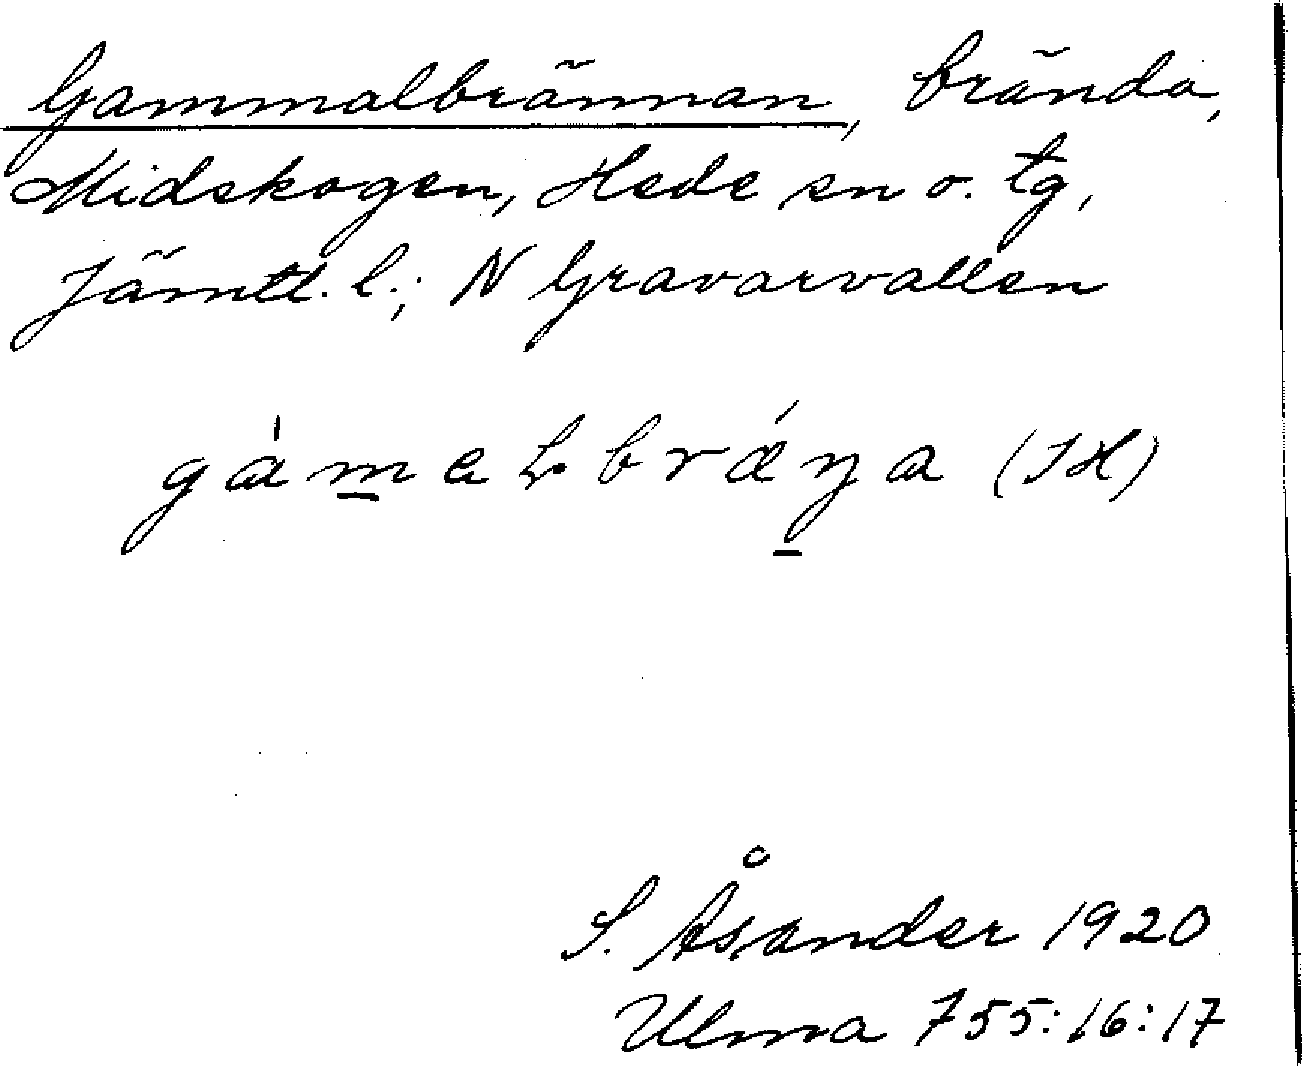 Gammalbrännan, brända,
Midskogen, Hede sn o. tg,
Jämtl. l.; N Gravarvallen
(JH)
S. Åsander 1920
Ulma 755:16:17